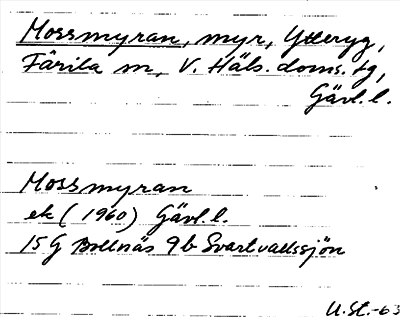 Mossmyran, myr, Ytteryg,
Färila sn, V. Häls. doms. tg,
Gävl. l.
Mossmyran
ek (1960) Gävl. l.
15G Bollnäs 9b Svartvallssjön
U.St.-63